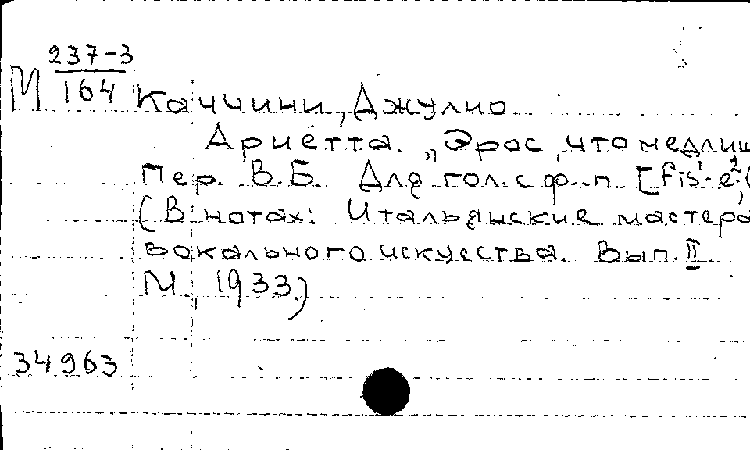 М 237-3
164
Каччини, Джулио
Ариетта. „Эрос, что медлиш
Пер. В.Б. Для гол. с ф-п. [fis¹-e²;
(В нотах: Итальянские мастера
вокального искусства. Вып. II
М., 1933.)
34963